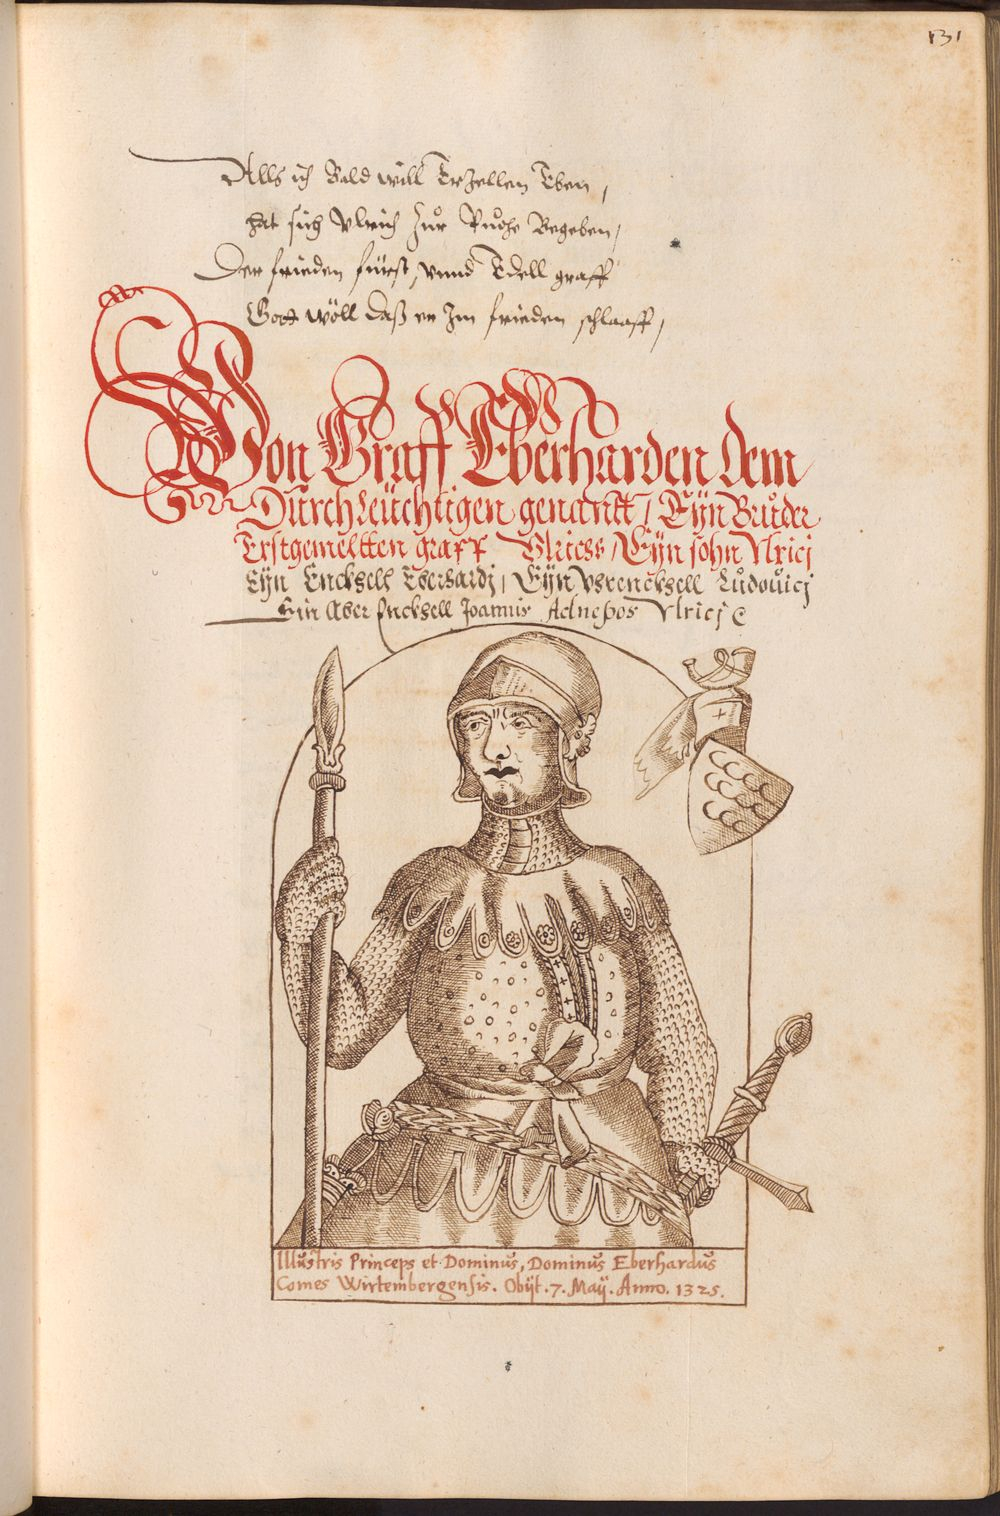 131
Alls ich Bald will Erzellen Eben,
hat sich Vlrich Zůr Růohe Begeben,
Der frieden fürst, vnnd Edell graff
Gott wöll daß er Im frieden schlaaff,
Von Graff Eberharden dem
Durchleüchtigen genantt / Eÿn Brůder
Erstgemeltten graff Vlriess / Eÿn sohn Vlricj
Eÿn Enckhell Eberhardj, Eÿn Vhrenckhell Lůdoůicj
Ein Aber Enckhell Joannis Adnepos Vlricj
Illůstris Princeps et Dominůs, Dominůs Eberhardůs
Comes Wirtembergensis. Obijt. 7. Maÿ. Anno. 1325.